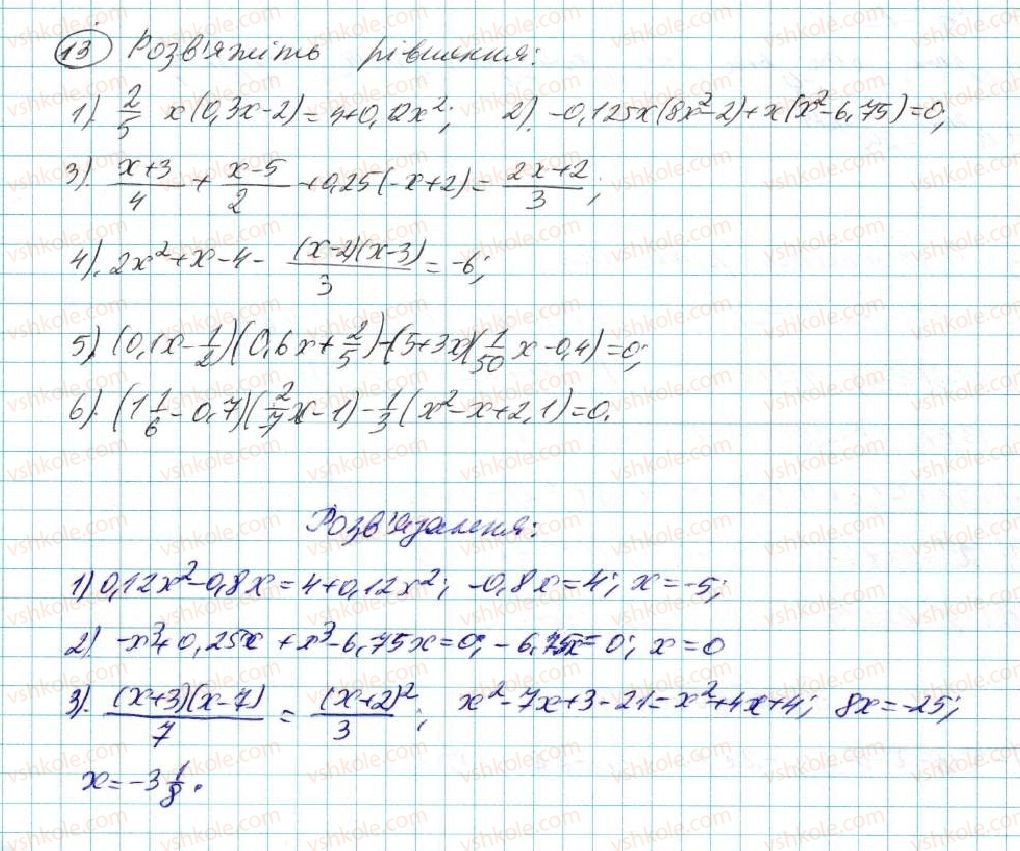 13 Розв'яжіть рівняння:
1) 2/5 x(0,3x-2)=4+0,12x²; 2) -0,125x(8x²-2)+x(x²-6,75)=0;
3) (x+3)/4 + (x-5)/2 +0,25(-x+2)= (2x+2)/3;
4) 2x²+x-4- (x-2)(x-3)/3 =-6;
5) (0,1x-1/2)(0,6x+2/5)-(5+3x)(1/50 x-0,4)=0;
6) (1 1/6-0,7)(2/7 x-1)-1/3(x²-x+2,1)=0.
Розв'язання:
1) 0,12x²-0,8x=4+0,12x²; -0,8x=4; x=-5;
2) -x³+0,25x+x³-6,75x=0; -6,75x=0; x=0
3) (x+3)(x-7)/7 = (x+2)²/3; x²-7x+3-21=x²+4x+4; 8x=-25;
x=-3 1/8.
vshkole.com